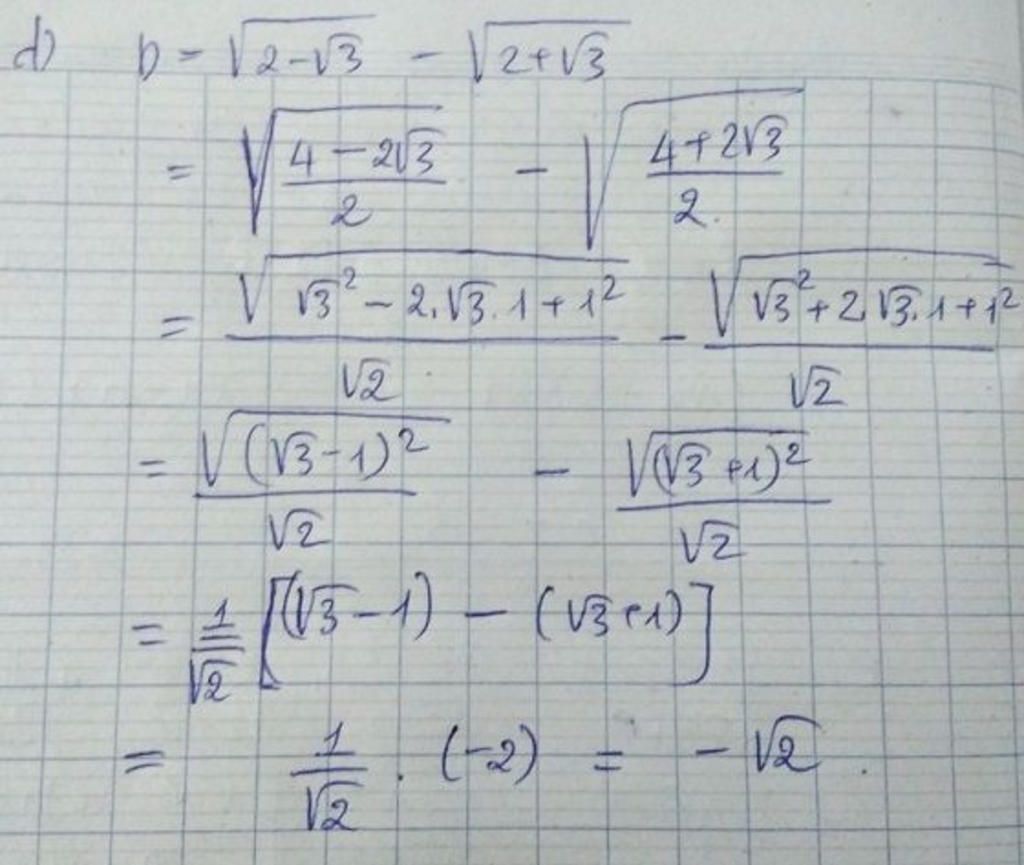 d) D = √(2-√3) - √(2+√3)
= √((4-2√3)/2) - √((4+2√3)/2)
= √(√3² - 2.√3.1 + 1²)/√2 - √(√3² + 2.√3.1 + 1²)/√2
= √((√3-1)²)/√2 - √((√3+1)²)/√2
= 1/√2 [(√3-1) - (√3+1)]
= 1/√2 . (-2) = -√2.